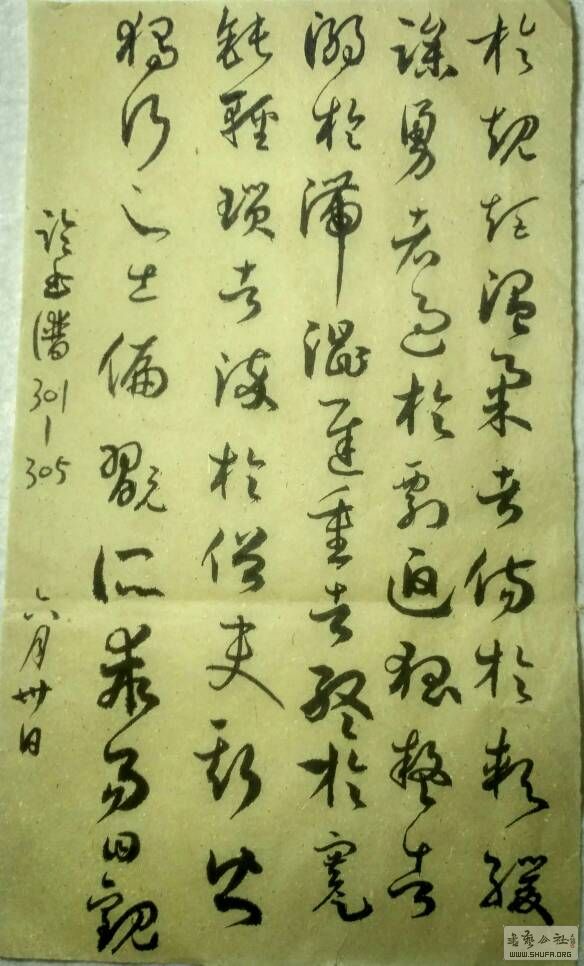 於規矩温柔者傷於軟緩
躁勇者過於剽迫狐疑者
溺於滯澀遲重者終於蹇
鈍輕瑣者淬於俗吏斯皆
獨行之士偏翫所乖易曰觀
臨書譜301-305 六月卅日
書藝公社
WWW.SHUFA.ORG